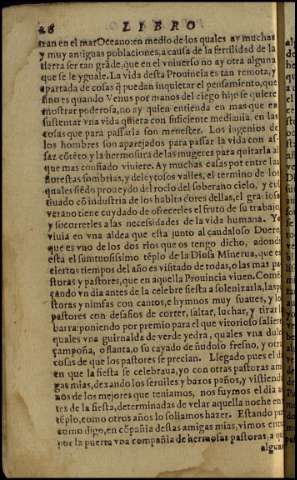 28 LIBRO
tran en el mar Oceano: en medio de los quales ay muchas
y muy antiguas poblaciones, a causa de la fertilidad de la
tierra ser tan grãde, que en el vniuerso no ay otra alguna
que se le yguale. La vida desta Prouincia es tan remota, y
apartada de cosas q̃ puedan inquietar el pensamiento, que
sino es quando Venus por manos del ciego hijo se quiere
mostrar poderosa, no ay quien entienda en mas que en
sustentar vna vida quieta con suficiente mediania, en las
cosas que para passarla son menester. Los ingenios de
los hombres son aparejados para passar la vida con as-
saz cõtẽto, y la hermosura de las mugeres para quitarla al
que mas confiado viuiere. Ay muchas casas por entre las
florestas sombrias, y deleytosos valles, el termino de los
quales siẽdo proueydo del rocio del soberano cielo, y cul
tiuado cõ industria de los habitadores dellas, el gracioso
verano tiene cuydado de ofrecerles el fruto de su trabajo
y socorrerles a las necessidades de la vida humana. Yo
viuia en vna aldea que esta junto al caudaloso Duero,
que es vno de los dos rios que os tengo dicho, adonde
està el sumtuosissimo tẽplo de la Diosa Minerua, que en
ciertos tiempos del año es visitado de todas, o las mas pa
storas y pastores, que en aquella Prouincia viuen. Comen
çando vn dia antes de la celebre fiesta a solenizarla, las pa
storas y nimfas con cantos, e hymnos muy suaues, y los
pastores con desafios de correr, saltar, luchar, y tirar la
barra poniendo por premio para el que vitorioso saliere
quales vna guirnalda de verde yedra, quales vna dulce
çampoña, o flauta, o su cayado de ñudoso fresno, y otras
cosas de que los pastores se precian. Llegado pues el dia
en que la fiesta se celebraua, yo con otras pastoras ami
gas mias, dexando los seruiles y baxos paños, y vistiendo
nos de los mejores que teniamos, nos fuymos el dia an
tes de la fiesta, determinadas de velar aquella noche en el
tẽplo, como otros años lo soliamos hazer. Estando pues
como digo, en cõpañia destas amigas mias, vimos entrar
por la puerta vna compañia de hermosas pastoras, a quien
algunos